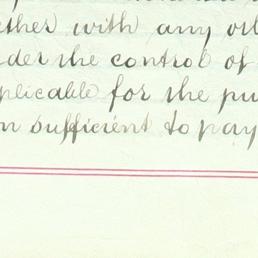 ether with any oth
der the control of
plicable for the pu
n sufficient to pay